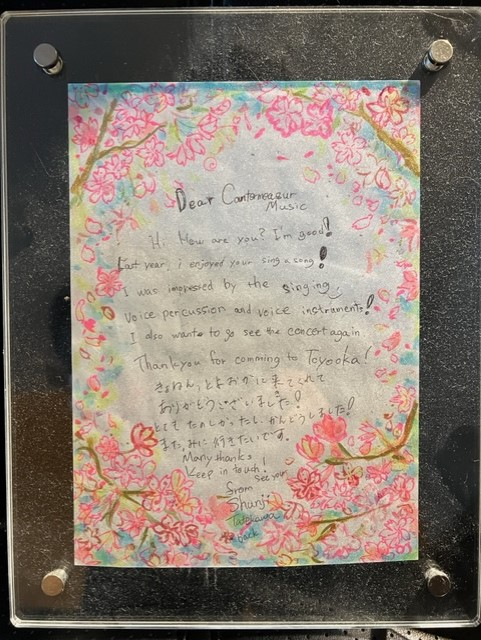 Dear Cantomeazur
Music
Hi. How are you? I'm good!
Last year, i enjoyed your sing a song!
I was impressed by the singing,
Voice percussion and voice instruments!
I also want to go see the concert again
Thank you for comming to Toyooka!
きょねん、とよおかに来てくれて
ありがとうございました!
とても たのしかったし、かんどうしました!
また、みに行きたいです。
Many thanks
Keep in touch!
see you
from
Shunji